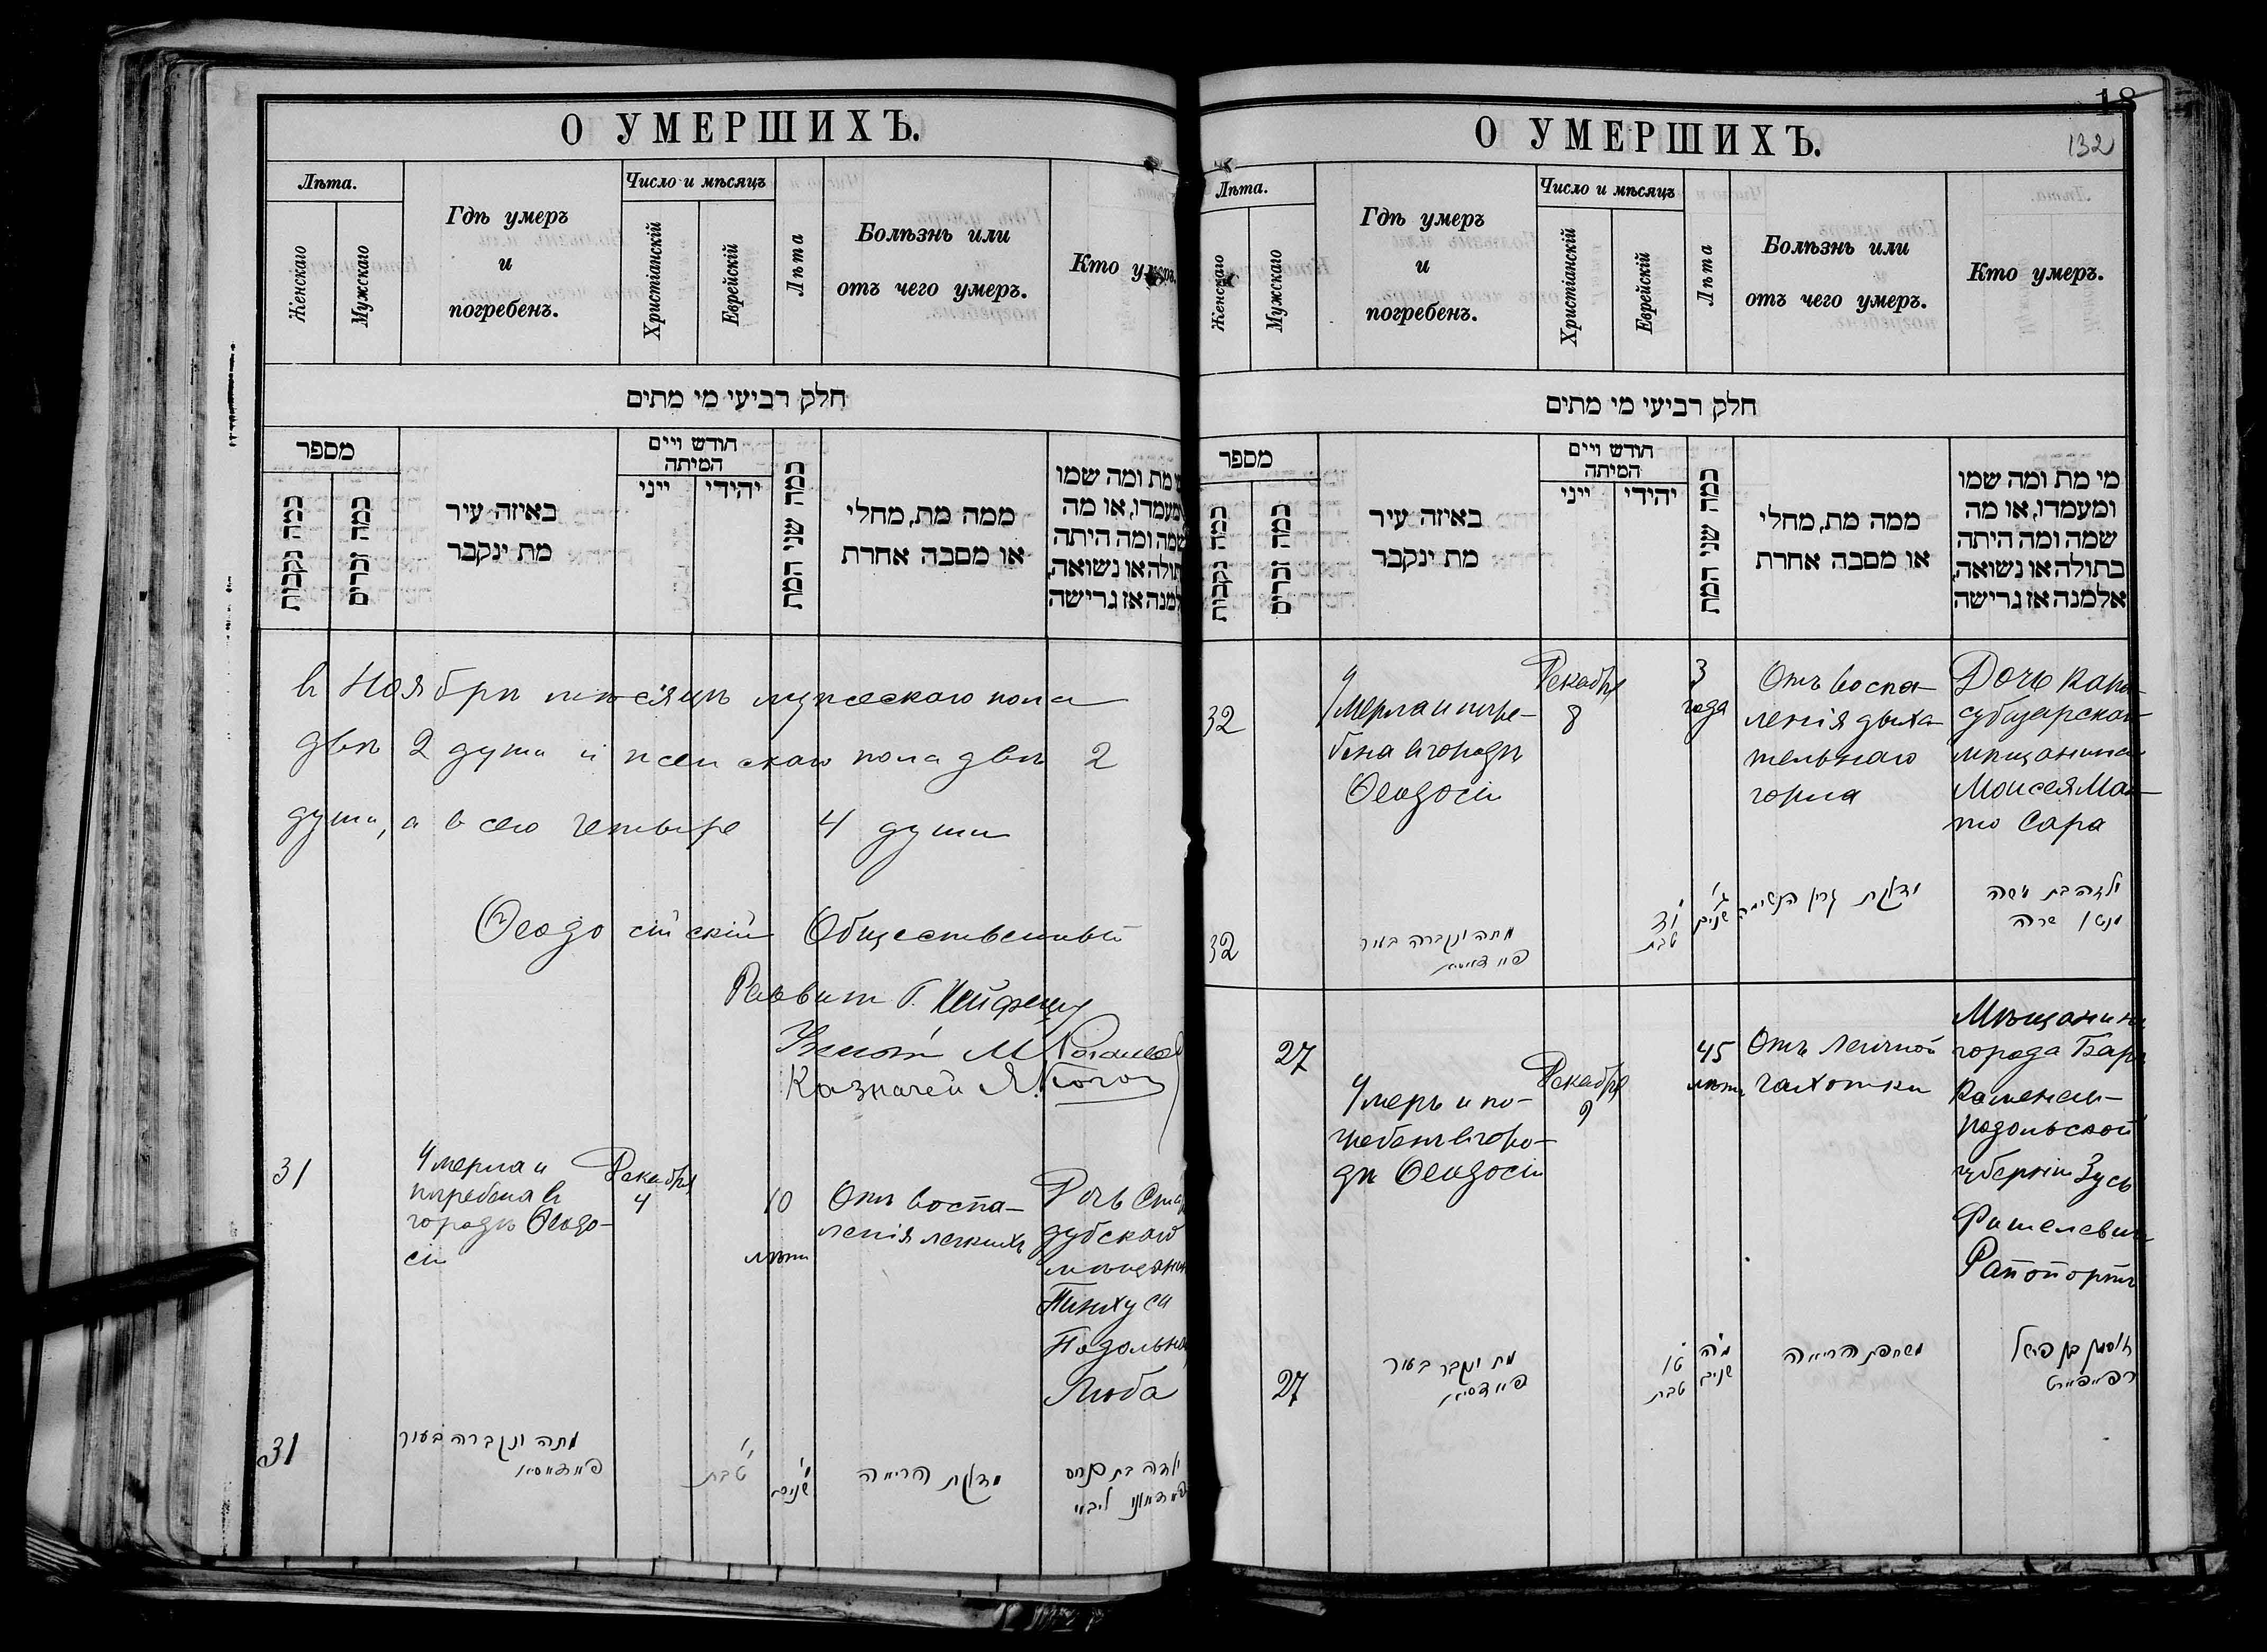 О УМЕРШИХЪ.
Лѣта.
Женскаго
Мужскаго
Гдѣ умеръ
и
погребенъ.
Число и мѣсяцъ
Христіанскій
Еврейскій
Лѣта
Болѣзнь или
отъ чего умеръ.
Кто умеръ.
חלק רביעי מי מתים
מספר
כמה נקבות
כמה זכרים
באיזה עיר
מת ינקבר
חודש ויים
המיתה
ייני
יהודי
כמה שני המת
ממה מת, מחלי
או מסבה אחרת
מת ומה שמו
ומעמדו, או מה
שמה ומה היתה
בתולה או נשואה,
אלמנה אז גרישה
въ Ноябрѣ мѣсяцѣ мужескаго пола
двѣ 2 души и женскаго пола двѣ 2
души, а всего четыре 4 души
Ѳеодосійскій Общественный
Раввинъ Г. Хейфецъ
Ученый М.
Казначей Я. Коган
31
Умерла и
погребена въ
городѣ Ѳеодо-
сіи
Декабря
4
10
лѣтъ
Отъ воспа-
ленія легкихъ
Дочь Ста
дубскаго
мѣщанин
Пинхуса
Подольн
Люба
31
מתה ונקברה בעיר
פיידאסיא
י'
טבת
י'
שנים
מדלקת הריאה
ילדה בת פנחס
ליבא
18
132
О УМЕРШИХЪ.
Лѣта.
Женскаго
Мужскаго
Гдѣ умеръ
и
погребенъ.
Число и мѣсяцъ
Христіанскій
Еврейскій
Лѣта
Болѣзнь или
отъ чего умеръ.
Кто умеръ.
חלק רביעי מי מתים
מספר
כמה נקבות
כמה זכרים
באיזה עיר
מת ינקבר
חודש ויים
המיתה
ייני
יהודי
כמה שני המת
ממה מת, מחלי
או מסבה אחרת
מי מת ומה שמו
ומעמדו, או מה
שמה ומה היתה
בתולה או נשואה,
אלמנה אז גרישה
32
Умерла и погре-
бена въ городѣ
Ѳеодосіи
Декабря
8
3
года
Отъ воспа-
ленія дыха-
тельнаго
горла
Дочь кара-
субазарскаго
мѣщанина
Моисея Ман-
то Сара
32
מתה ונקברה בעיר
יד
טבת
ג'
שנים
ילדה בת משה
מנטו שרה
27
Умеръ и по-
гребенъ въ горо-
дѣ Ѳеодосіи
Декабря
9
45
лѣтъ
Отъ легочной
чахотки
Мѣщанинъ
города Бара
Каменец-
подольской
губерніи Зусь
Фишелевич
Рапопортъ
27
מת ונקבר בעיר
טו
טבת
מה
שנים
משחפת הריאה
זוסמן בן פישל